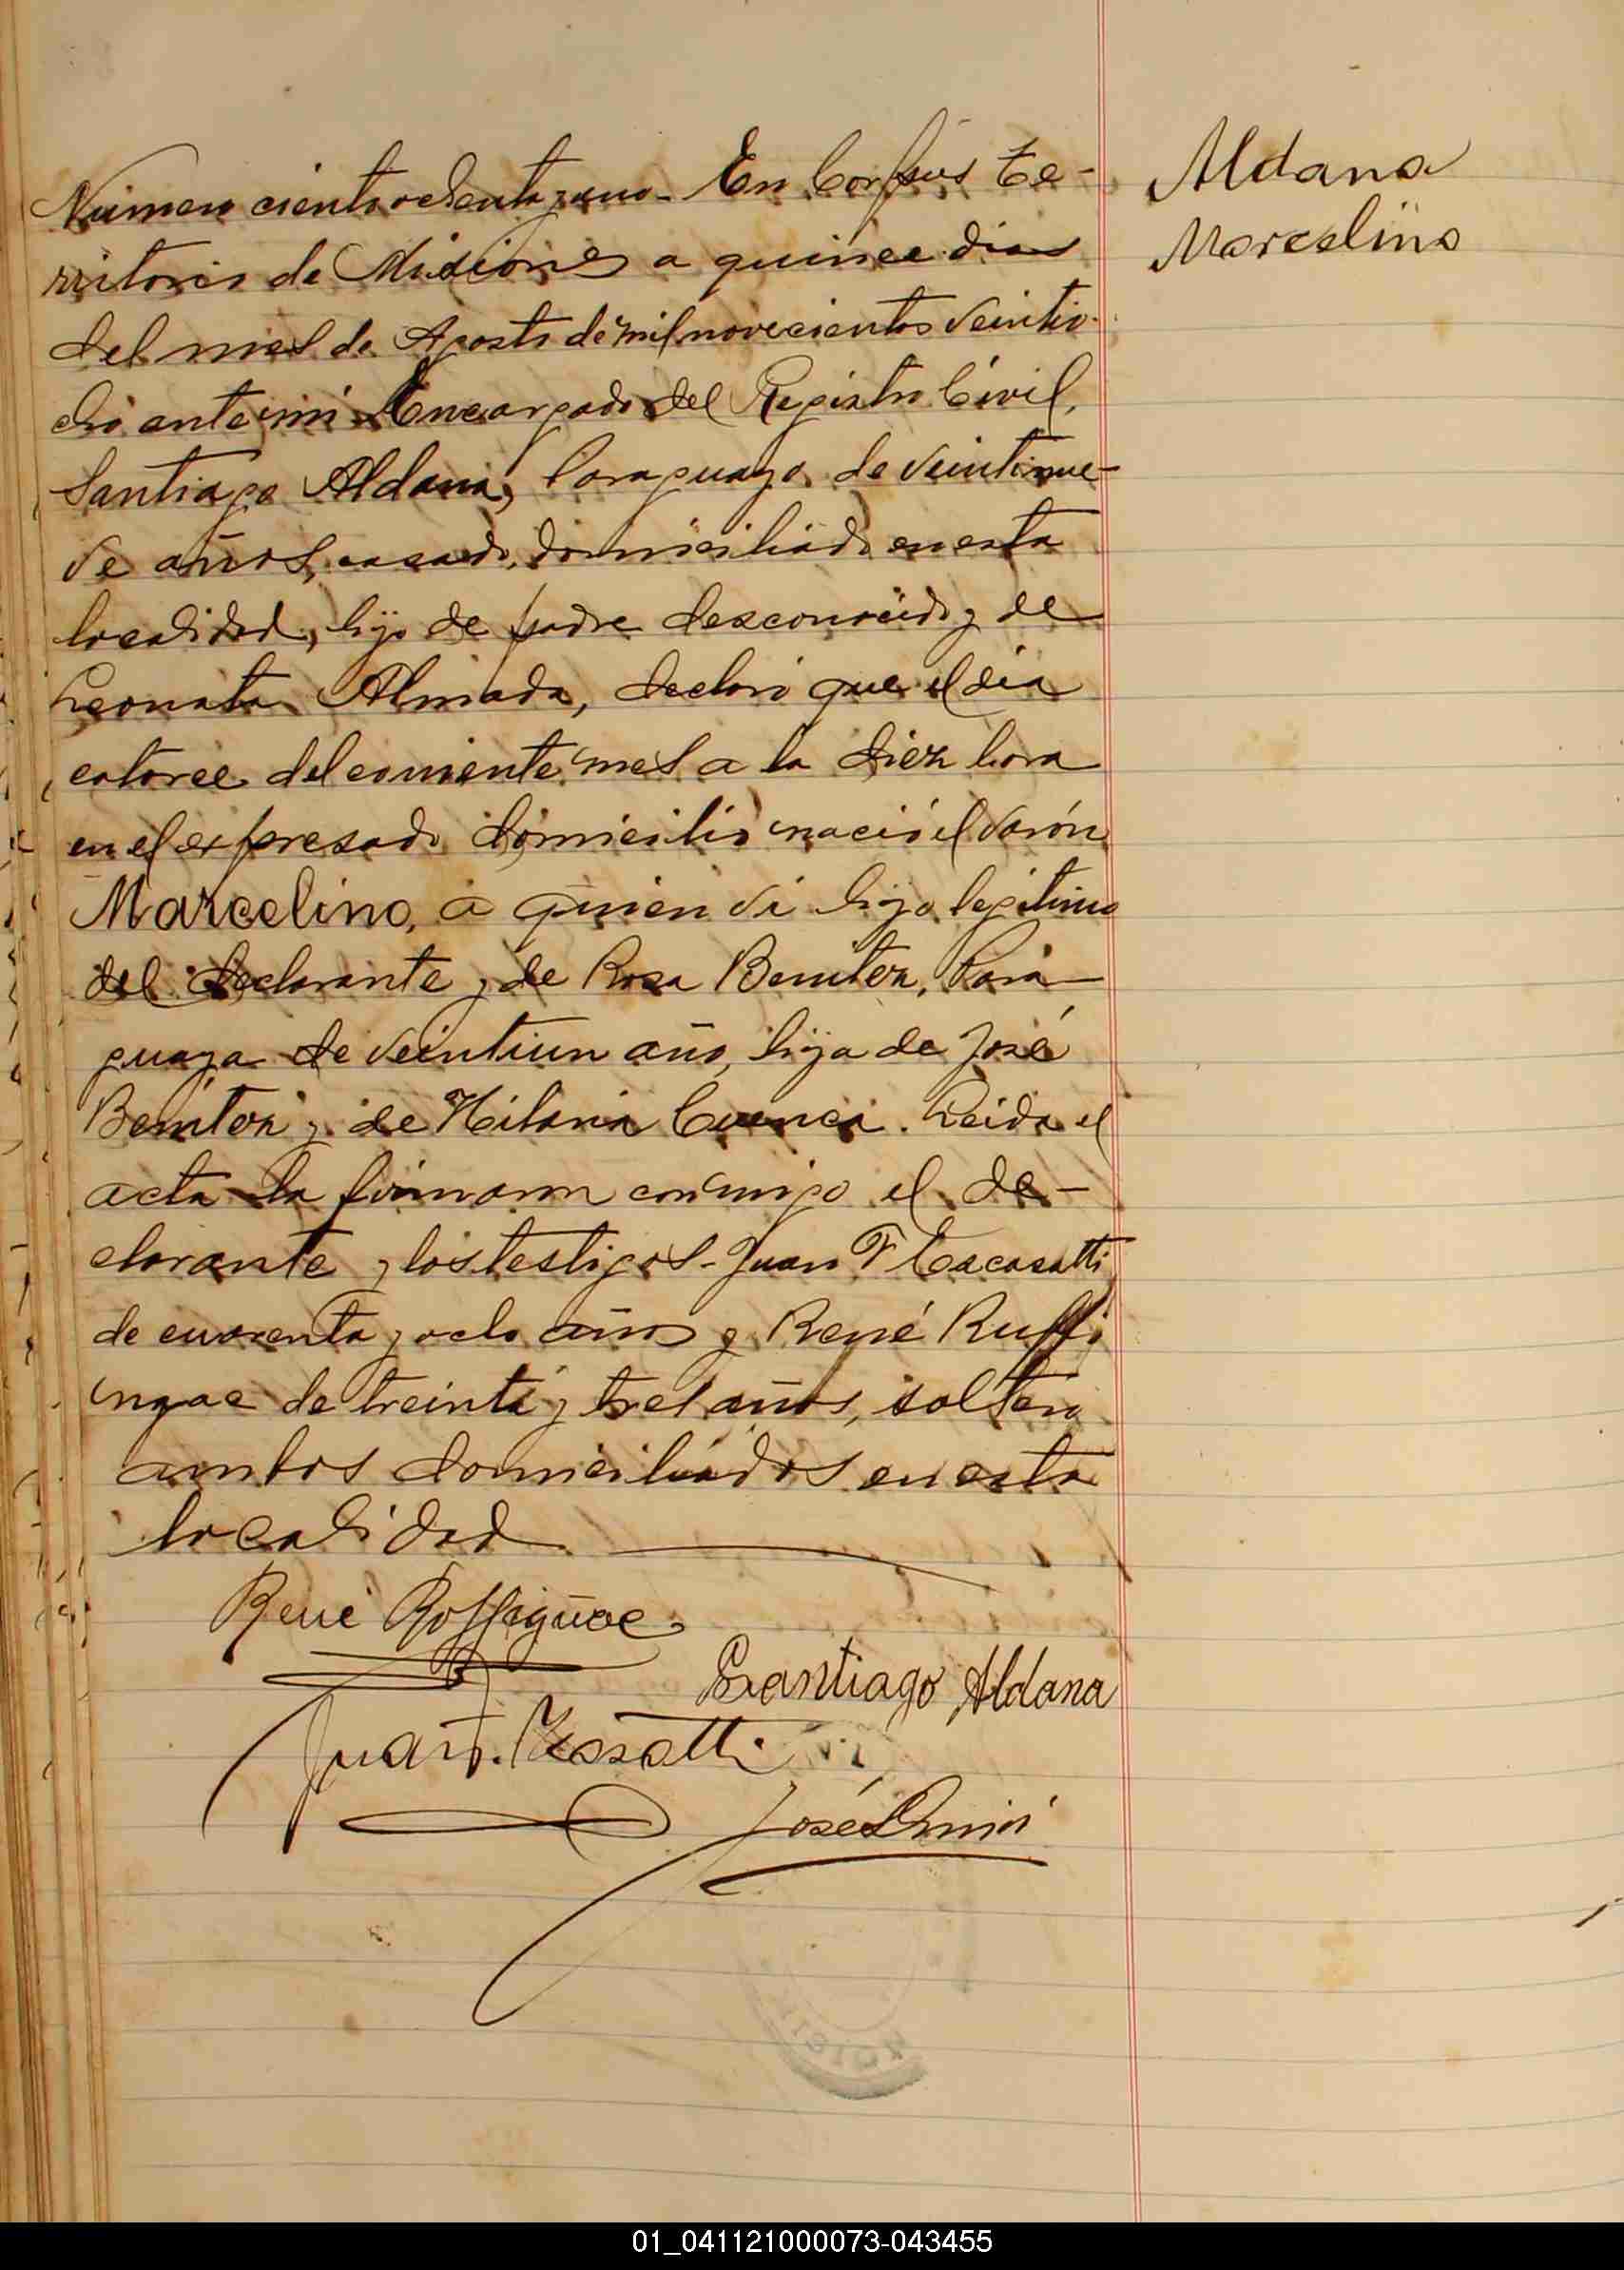 Aldana
Marcelino
Número ciento ochenta y uno - En Corpus Te-
rritorio de Misiones a quince dias
del mes de Agosto de mil novecientos veintio-
cho ante mi Encargado del Registro Civil,
Santiago Aldana, Paraguayo de veintinue-
ve años, casado, domiciliado en esta
localidad, hijo de padre desconocido y de
Leonata Almada, declaró que el dia
catorce del corriente mes a la diez hora
en el expresado domicilio nació el varón
Marcelino, a quien vi hijo legitimo
del declarante y de Rosa Benitez, Para-
guaya de veintiun año, hija de José
Benitez y de Hilaria Cuenca. Leida el
acta la firmaron conmigo el de-
clarante y los testigos - Juan F
de cuarenta y ocho años y René Ruffi
gnac de treinta y tres años, soltero
ambos domiciliados en esta
localidad
René Roffignac
Santiago Aldana
Juan F.
José
01_041121000073-043455